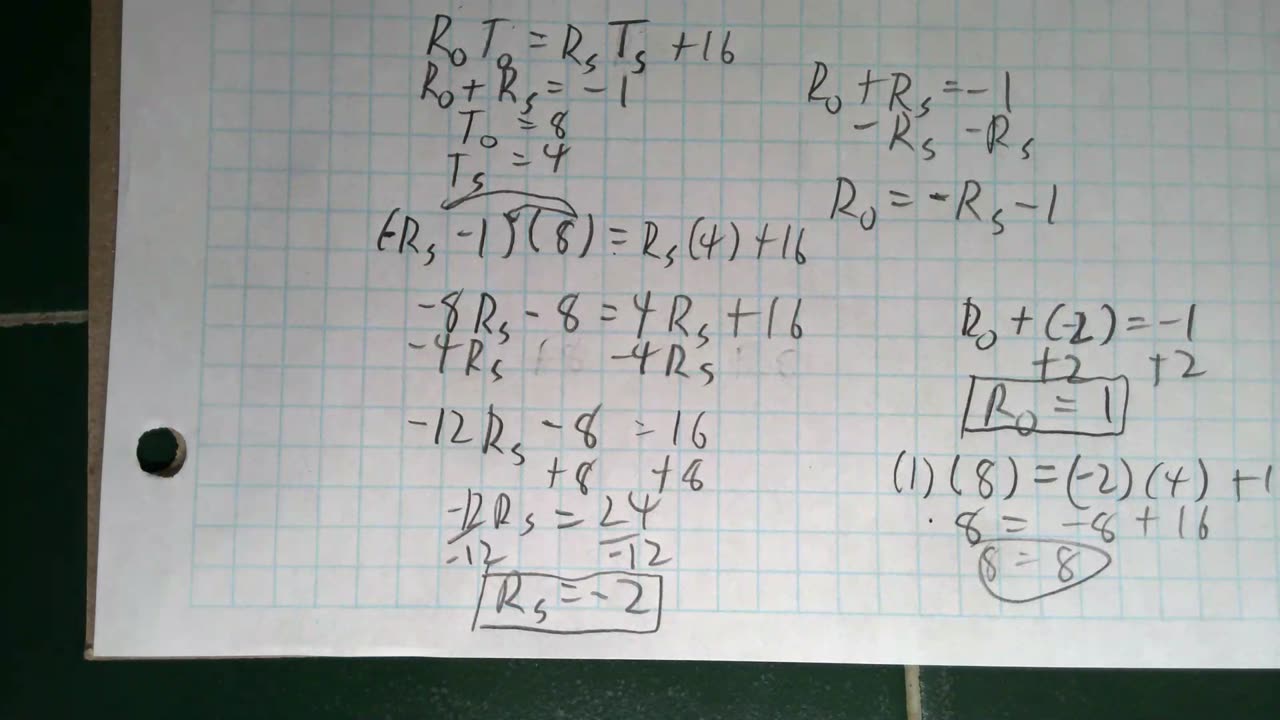 R₀ T₀ = Rₛ Tₛ + 16
R₀ + Rₛ = -1
T₀ = 8
Tₛ = 4
(-Rₛ - 1)(8) = Rₛ(4) + 16
-8Rₛ - 8 = 4Rₛ + 16
-4Rₛ -4Rₛ
-12Rₛ - 8 = 16
+8 +8
-12Rₛ = 24
-12 -12
Rₛ = -2
R₀ + Rₛ = -1
-Rₛ -Rₛ
R₀ = -Rₛ - 1
R₀ + (-2) = -1
+2 +2
R₀ = 1
(1)(8) = (-2)(4) + 1
8 = -8 + 16
8 = 8